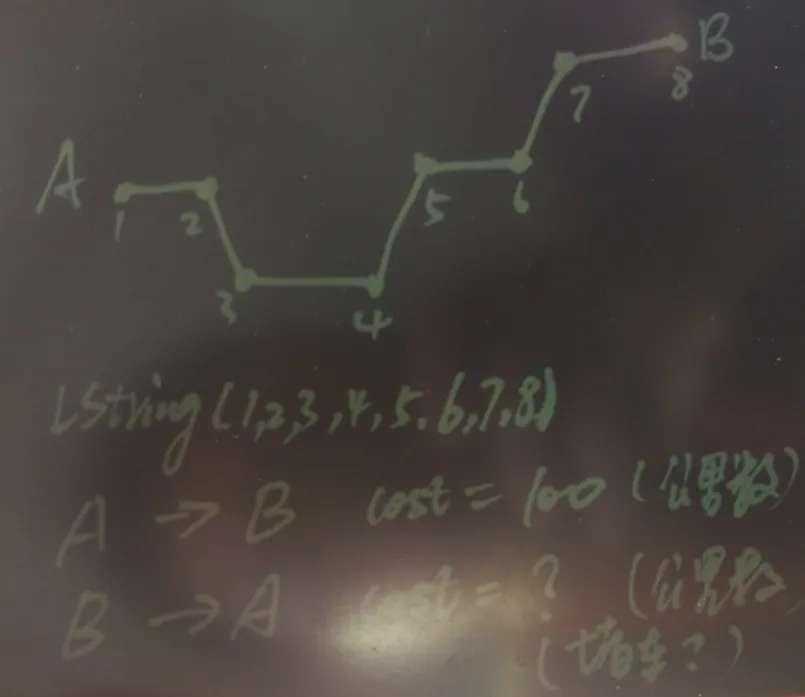 A
B
1
2
3
4
5
6
7
8
LString(1,2,3,4,5.6,7.8)
A → B cost = 100 (公里数)
B → A cost = ? (公里数
(堵车?)